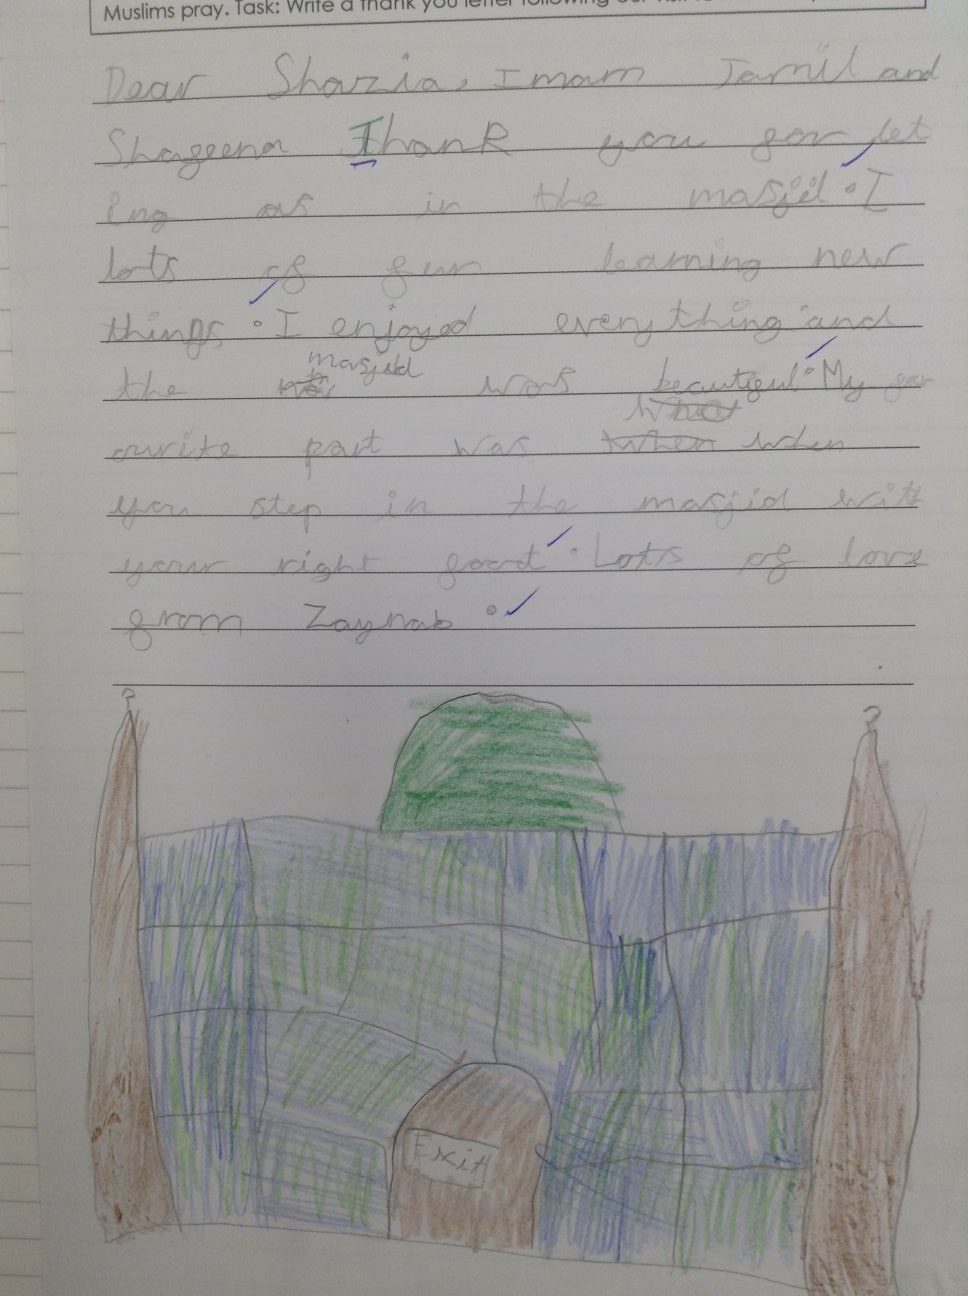 Muslims pray. Task: Write a thank you letter following our
Dear Shazia, Imam Jamil and
Shageena Thank you gor let
ing as in the masjid. I
lots of fun learning new
things. I enjoyed everything and
the masjid was beautigul. My gav
ourite part was when
you step in the masjid with
your right goot. Lots of love
grom Zaynab.
Exit